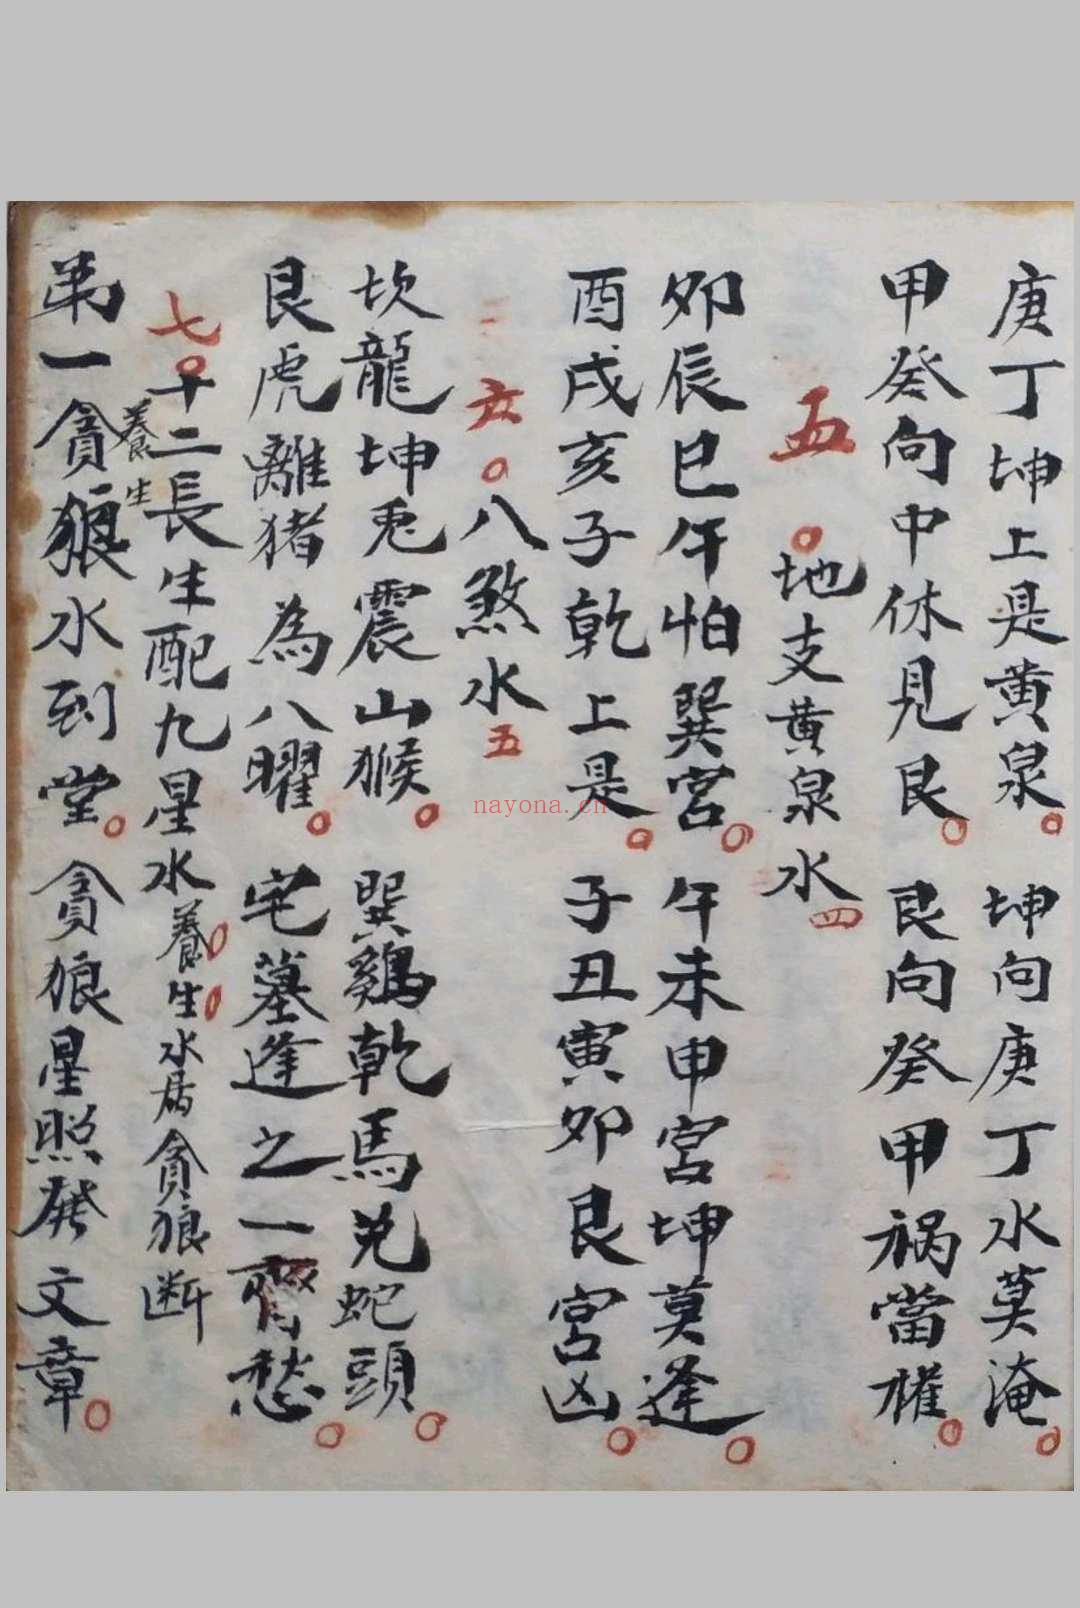 庚丁坤上是黄泉 坤向庚丁水莫淹
甲癸向中休見艮 艮向癸甲祸當權
五 地支黄泉水 四
卯辰巳午怕巽宫 午未申宫坤莫逢
酉戌亥子乾上是 子丑寅卯艮宫凶
六 八煞水 五
坎龍坤兎震山猴 巽鷄乾馬兑蛇頭
艮虎離猪為八曜 宅墓逢之一齊愁
七 十二長生配九星水 養生水居貪狼断
養生
弟一貪狼水到堂 貪狼星照發文章
nayona.cn